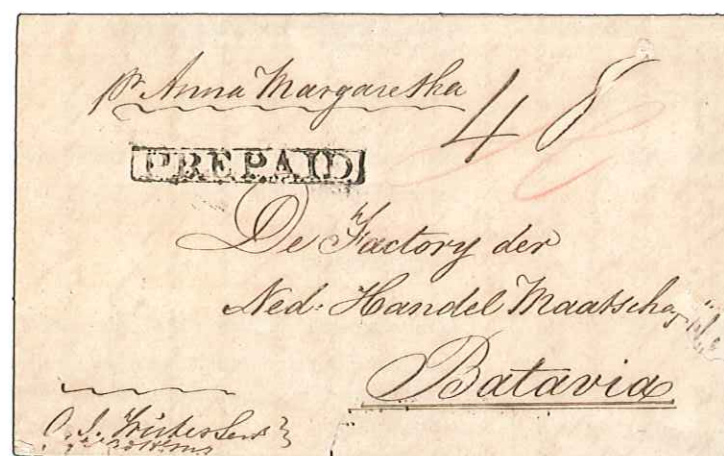 pr Anna Margaretha
48
PREPAID
De Factory der
Ned: Handel Maatschappij
Batavia